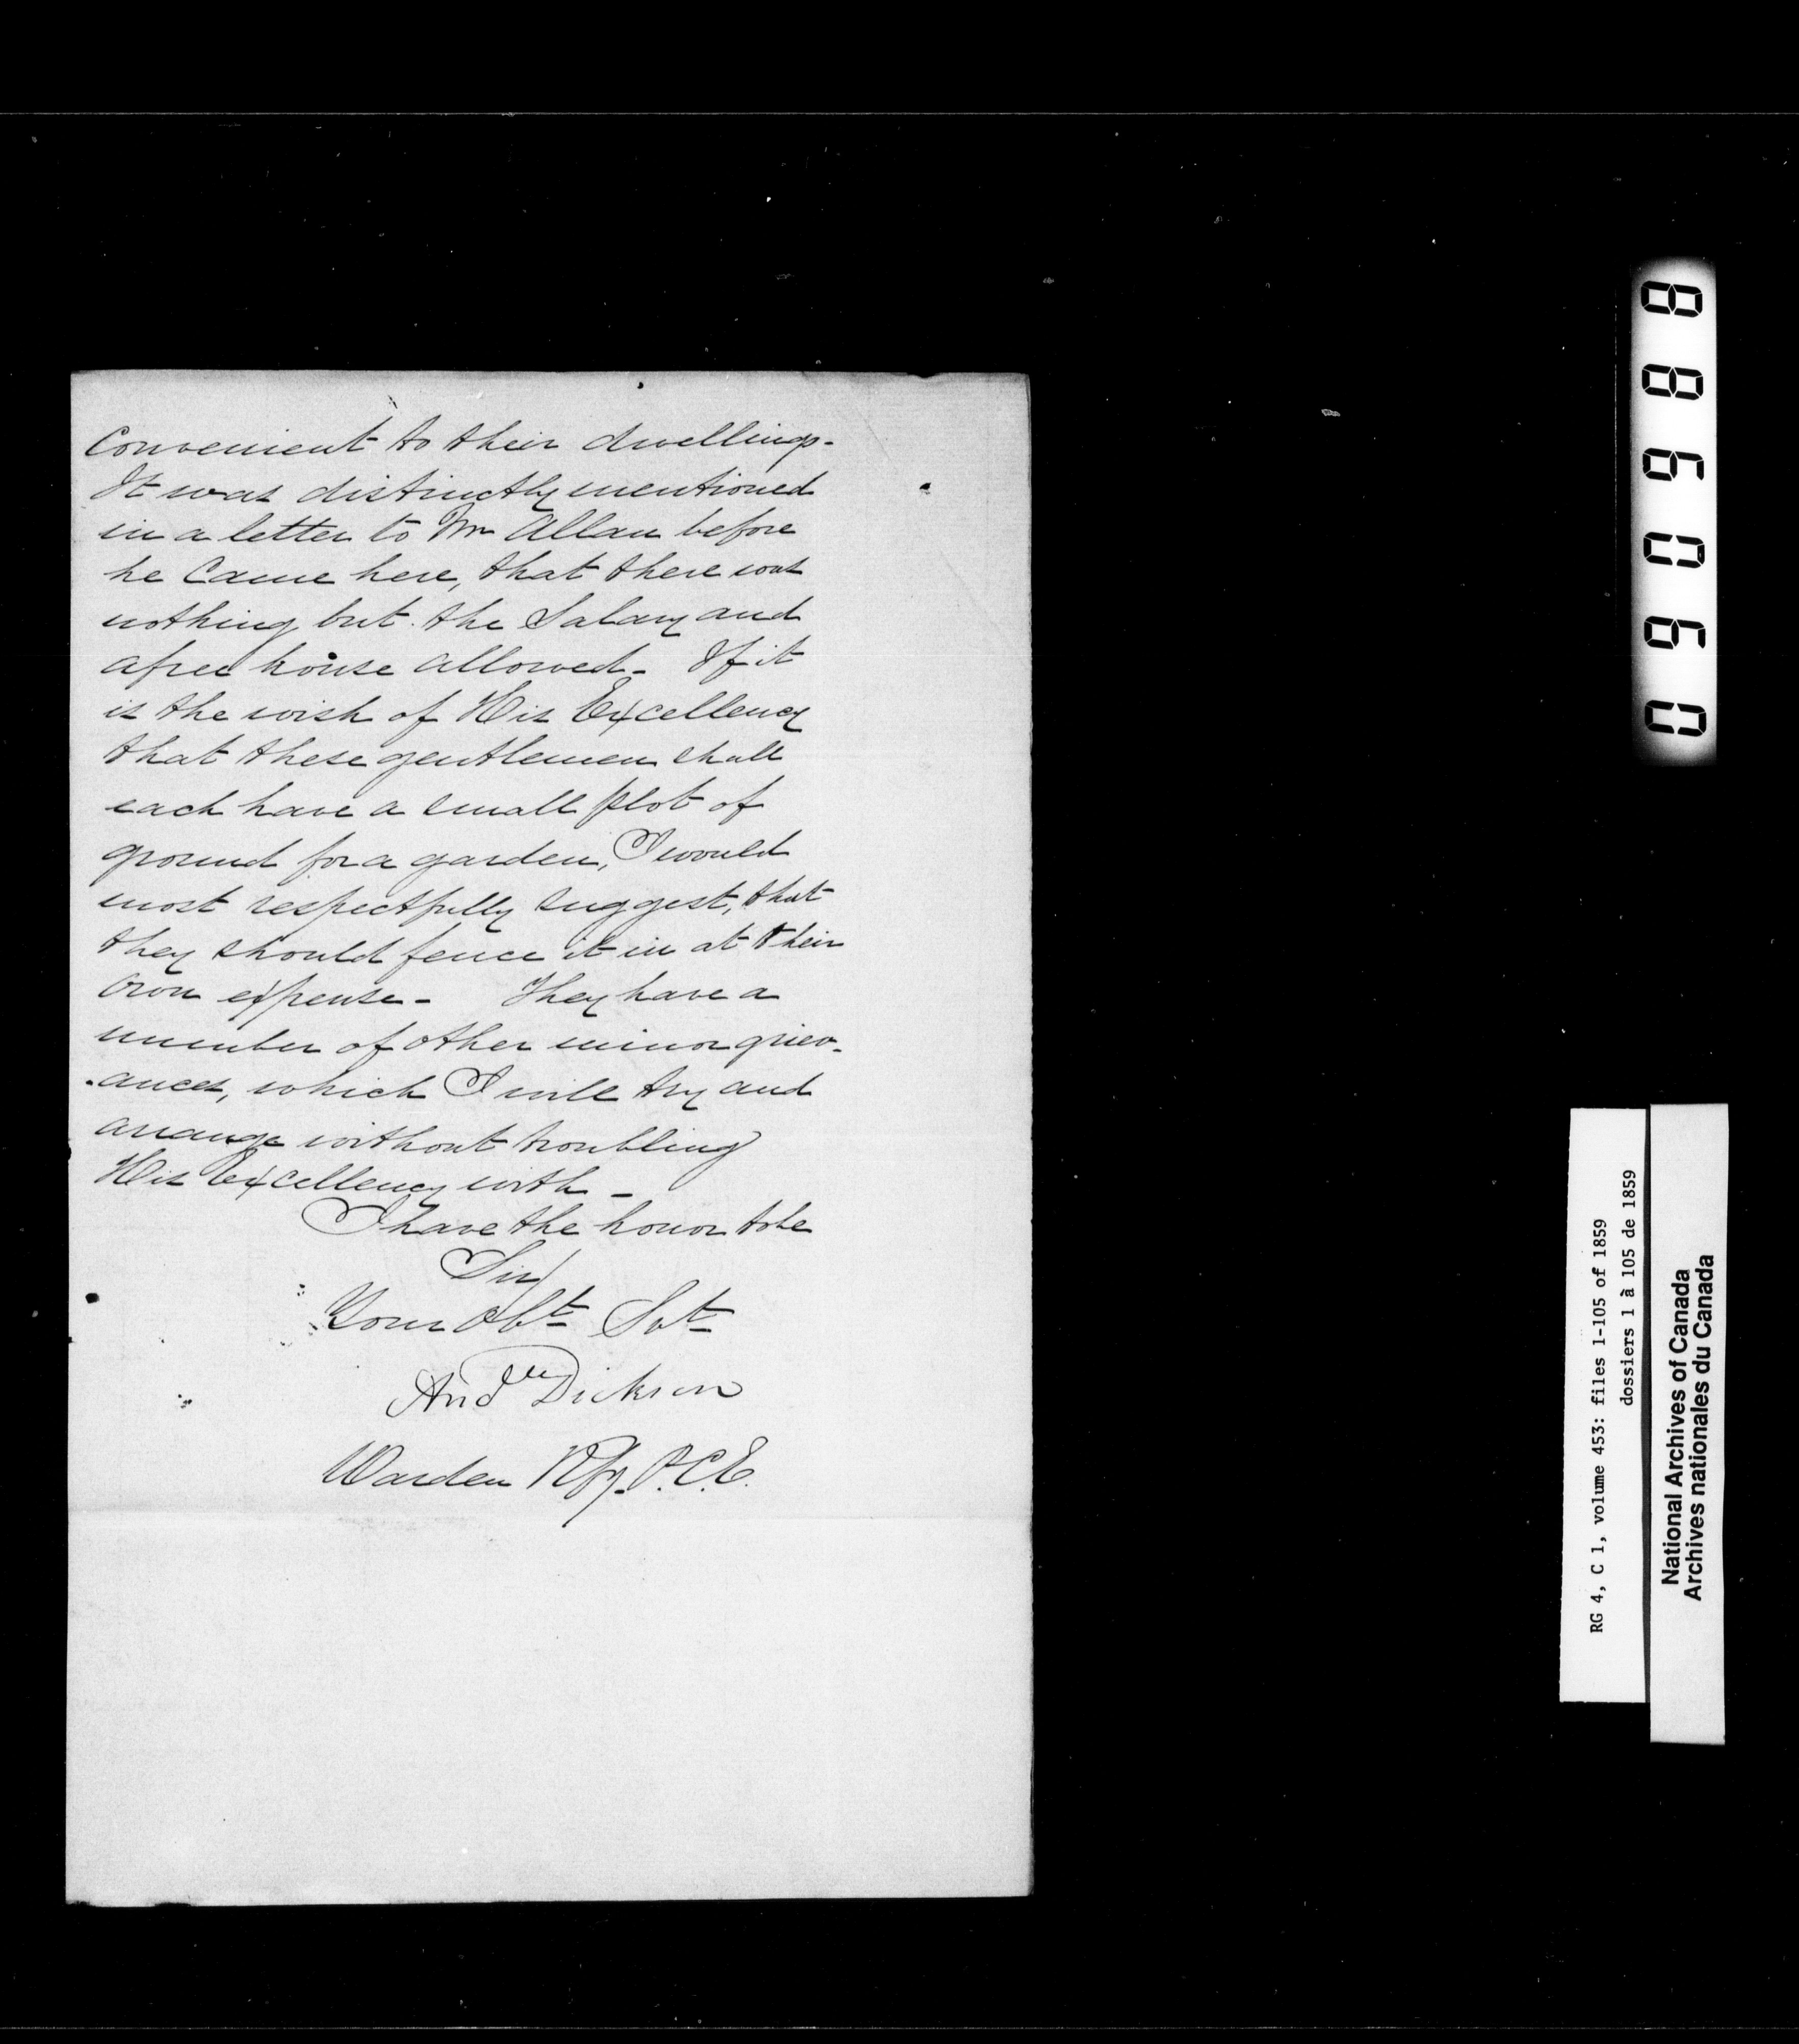 Convenient to their dwellings.
It was distinctly mentioned
in a letter to Mr Allan before
he Came here, that there was
nothing but the Salary and
a free house allowed. If it
is the wish of His Excellency
that these gentlemen shall
each have a small plot of
ground for a garden, I would
most respectfully suggest, that
they should fence it in at their
own expense. They have a
number of other minor griev-
-ances, which I will try and
arrange without troubling
His Excellency with.
I have the honor to be
Sir
Your Obt Svt
Andw Dickson
Warden P.C.E.
069088
RG 4, C 1, volume 453: files 1-105 of 1859
dossiers 1 à 105 de 1859
National Archives of Canada
Archives nationales du Canada